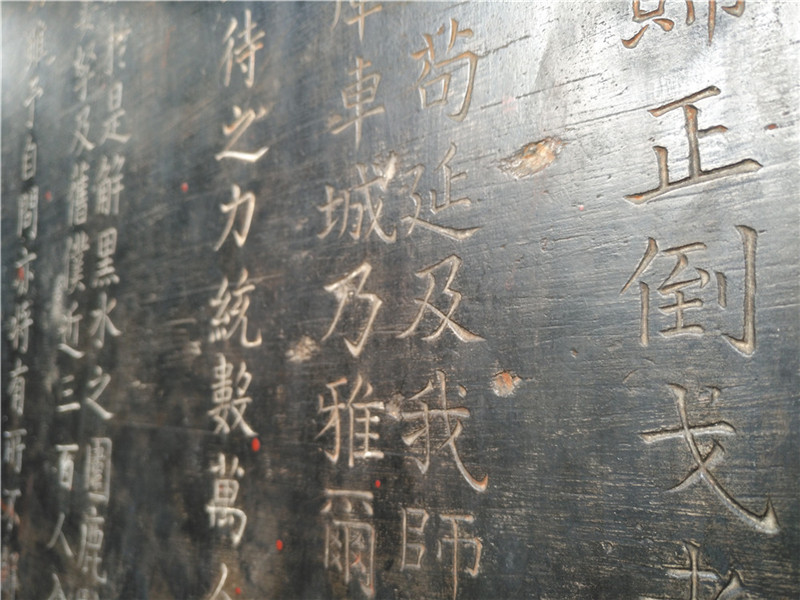 正倒戈者
苟延及我師
庫車城乃雅爾
待之力統數萬
於是解黑水之圍鹿
及舊僕近三百人
予自問亦將有所不